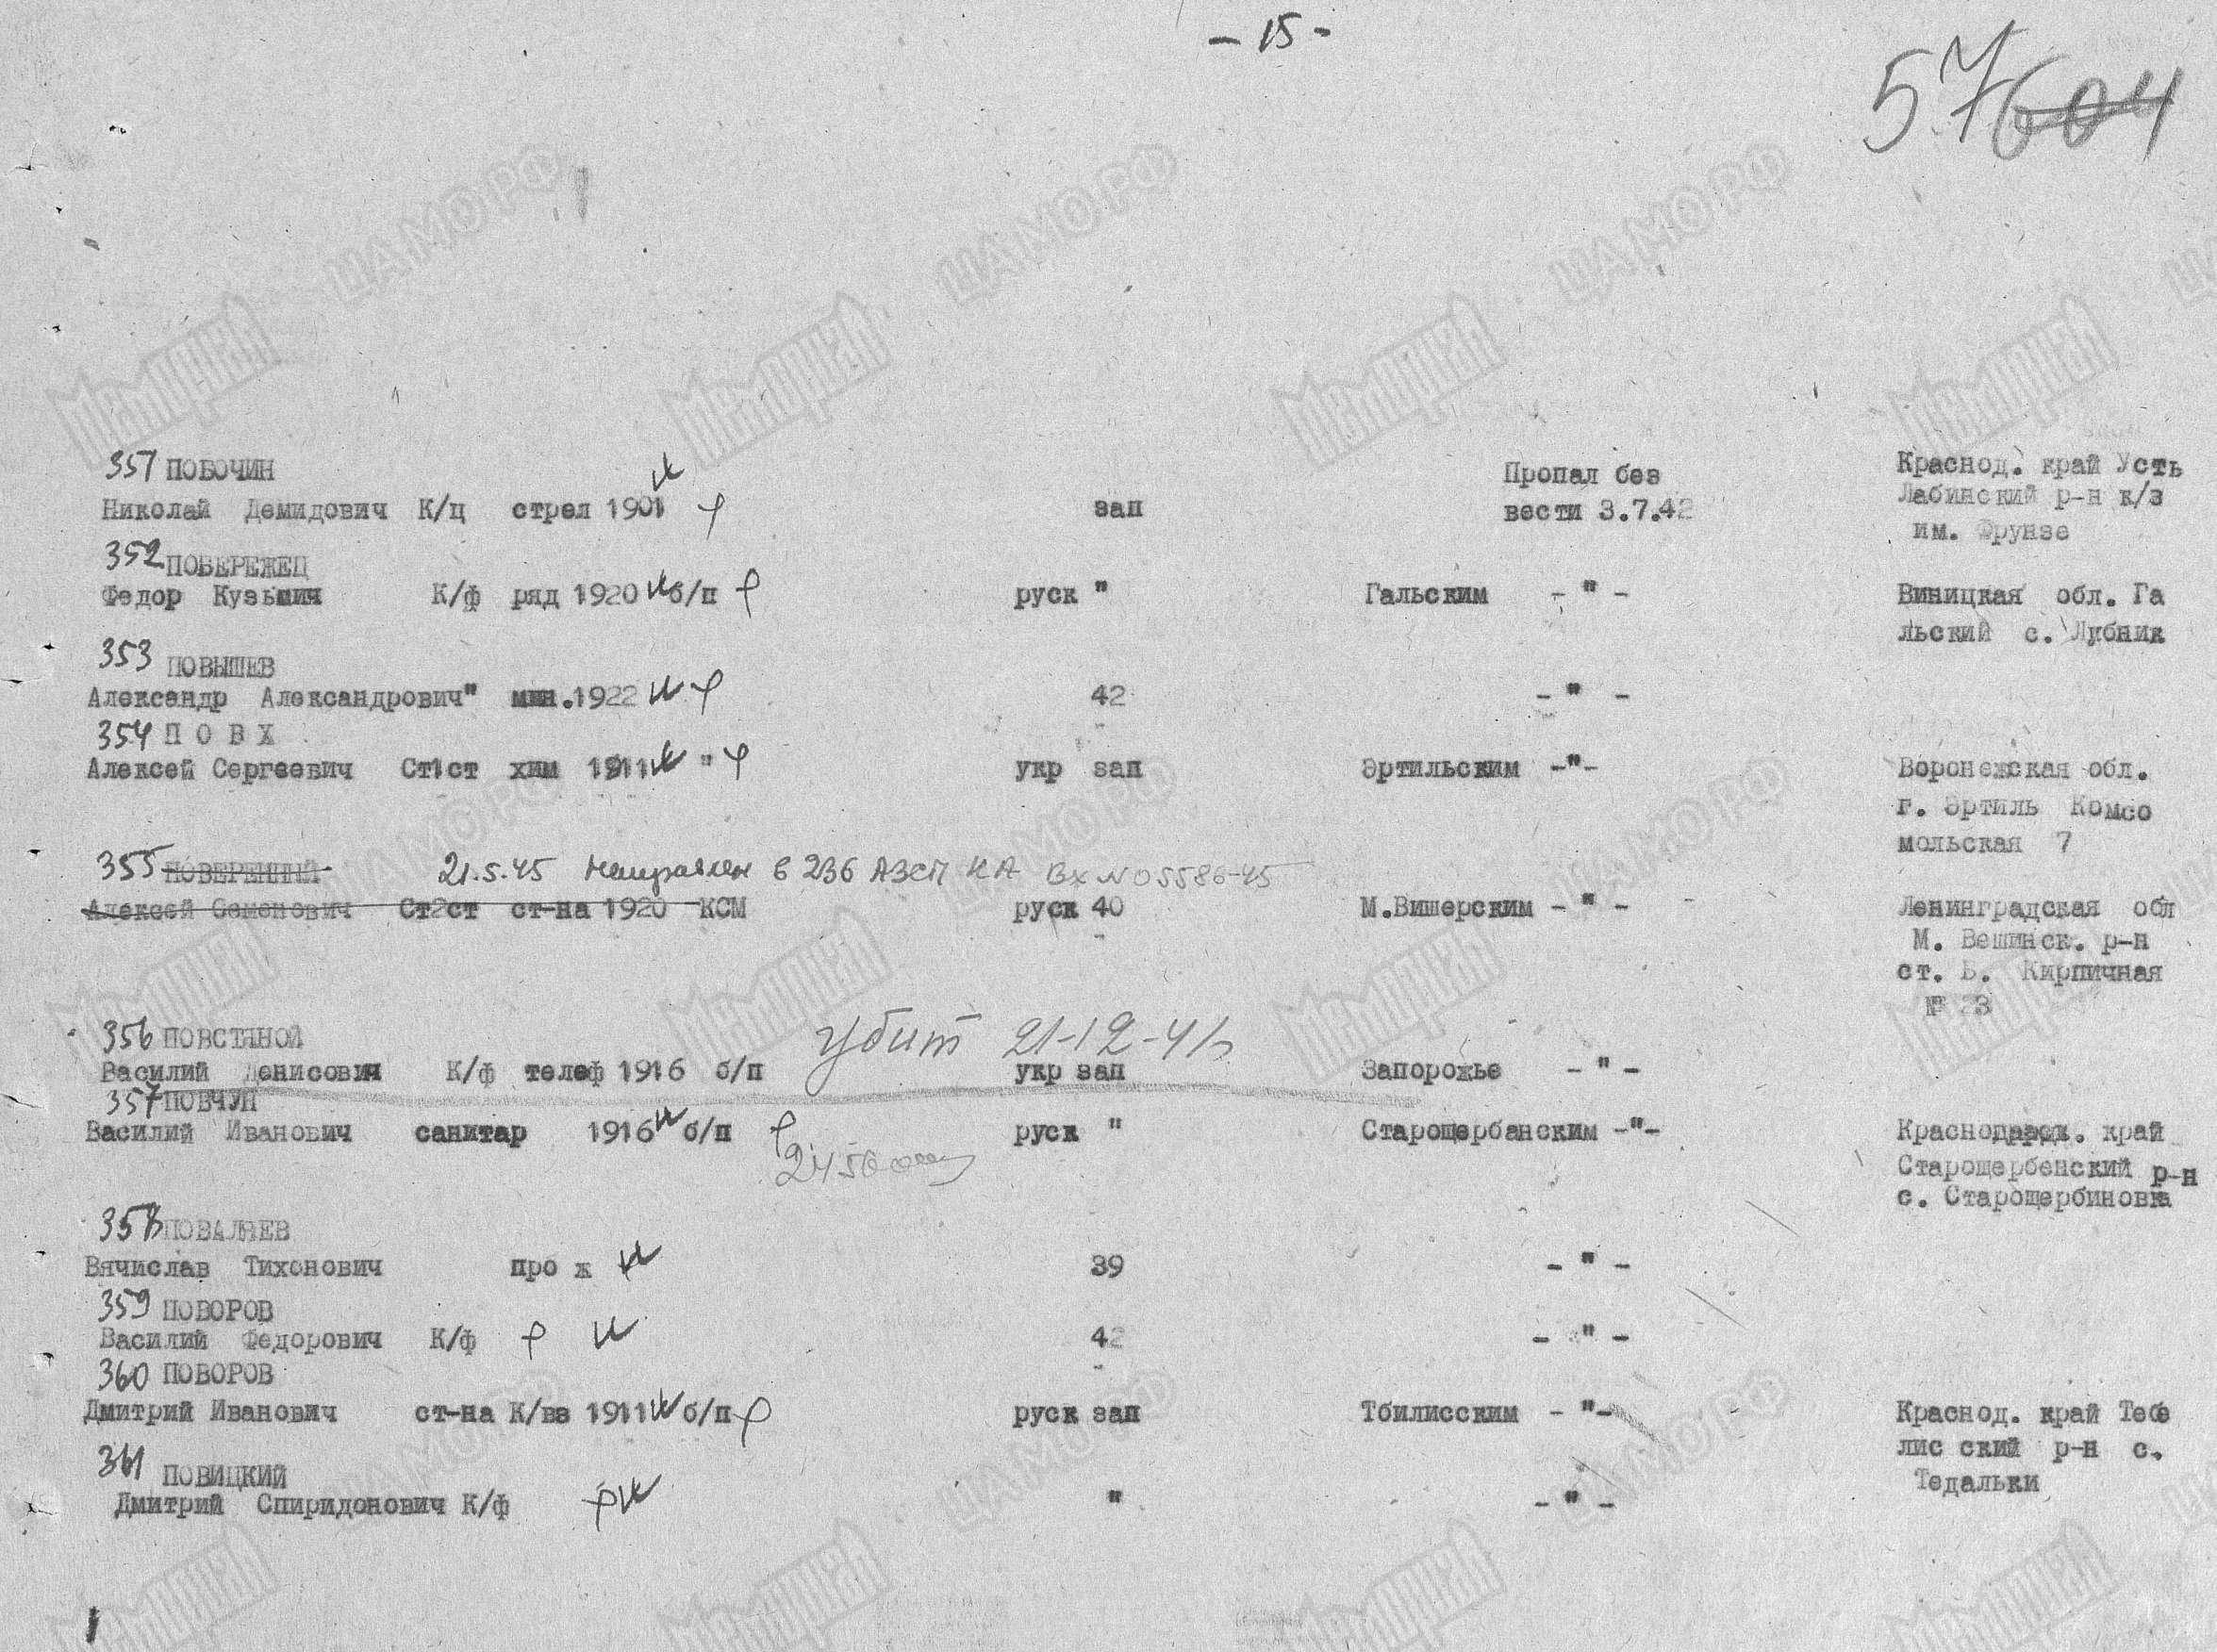 - 15 -
57 604
357 ПОБОЧИН
Николай Демидович К/ц стрел 1901 зап Пропал без вести 3.7.42 Краснод. край Усть
Лабинский р-н к/з
им. Фрунзе
352 ПОБЕРЕЖЕЦ
Федор Кузьмич К/ф ряд 1920 б/п руск " Гальским - " - Виницкая обл. Га
льский с. Лубник
353 ПОВЫШЕВ
Александр Александрович" мин. 1922 42 - " -
354 П О В Х
Алексей Сергеевич Ст1ст хим 1911 " укр зап Эртильским -"- Воронежская обл.
г. Эртиль Комсо
мольская 7
355 ПОВЕРЕННЫЙ 21.5.45 Направлен в 236 АЗСП КА Вх N 05586-45
Алексей Семенович Ст2ст ст-на 1920 КСМ руск 40 М.Вишерским - " - Ленинградская обл
М. Вешинск. р-н
ст. В. Кирпичная
№ 23
356 ПОВСТЯНОЙ убит 21-12-41
Василий Денисович К/ф телеф 1916 б/п укр зап Запорожье - " -
357 ПОВЧУН
Василий Иванович санитар 1916 б/п руск " Старощербанским -"- Краснодарск. край
24560
Старощербенский р-н
с. Старощербиновка
358 ПОВАЛЯЕВ
Вячислав Тихонович про ж 39 - " -
359 ПОВОРОВ
Василий Федорович К/ф 42 - " -
360 ПОВОРОВ
Дмитрий Иванович ст-на К/вз 1911 б/п руск зап Тбилисским - "- Краснод. край Тебе
лис ский р-н с.
Тедальки
361 ПОВИЦКИЙ
Дмитрий Спиридонович К/ф " - " -